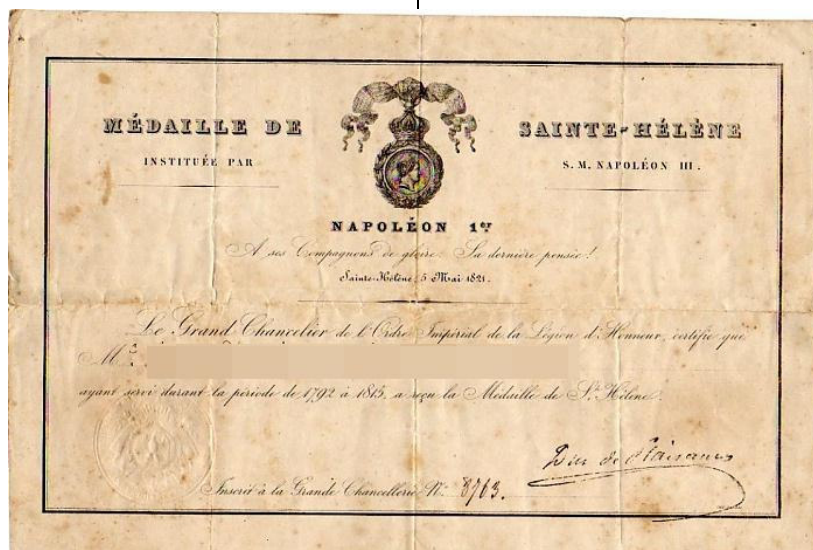 MÉDAILLE DE SAINTE-HÉLÈNE
INSTITUÉE PAR S. M. NAPOLÉON III.
NAPOLÉON 1er
A ses Compagnons de gloire. Sa dernière pensée!
Sainte-Hélène, 5 Mai 1821.
Le Grand Chancelier de l'Ordre Impérial de la Légion d'Honneur, certifie que
Mr.
ayant servi durant la période de 1792 à 1815, a reçu la Médaille de Ste Hélène.
Duc de Plaisance
Inscrit à la Grande Chancellerie No. 8763.